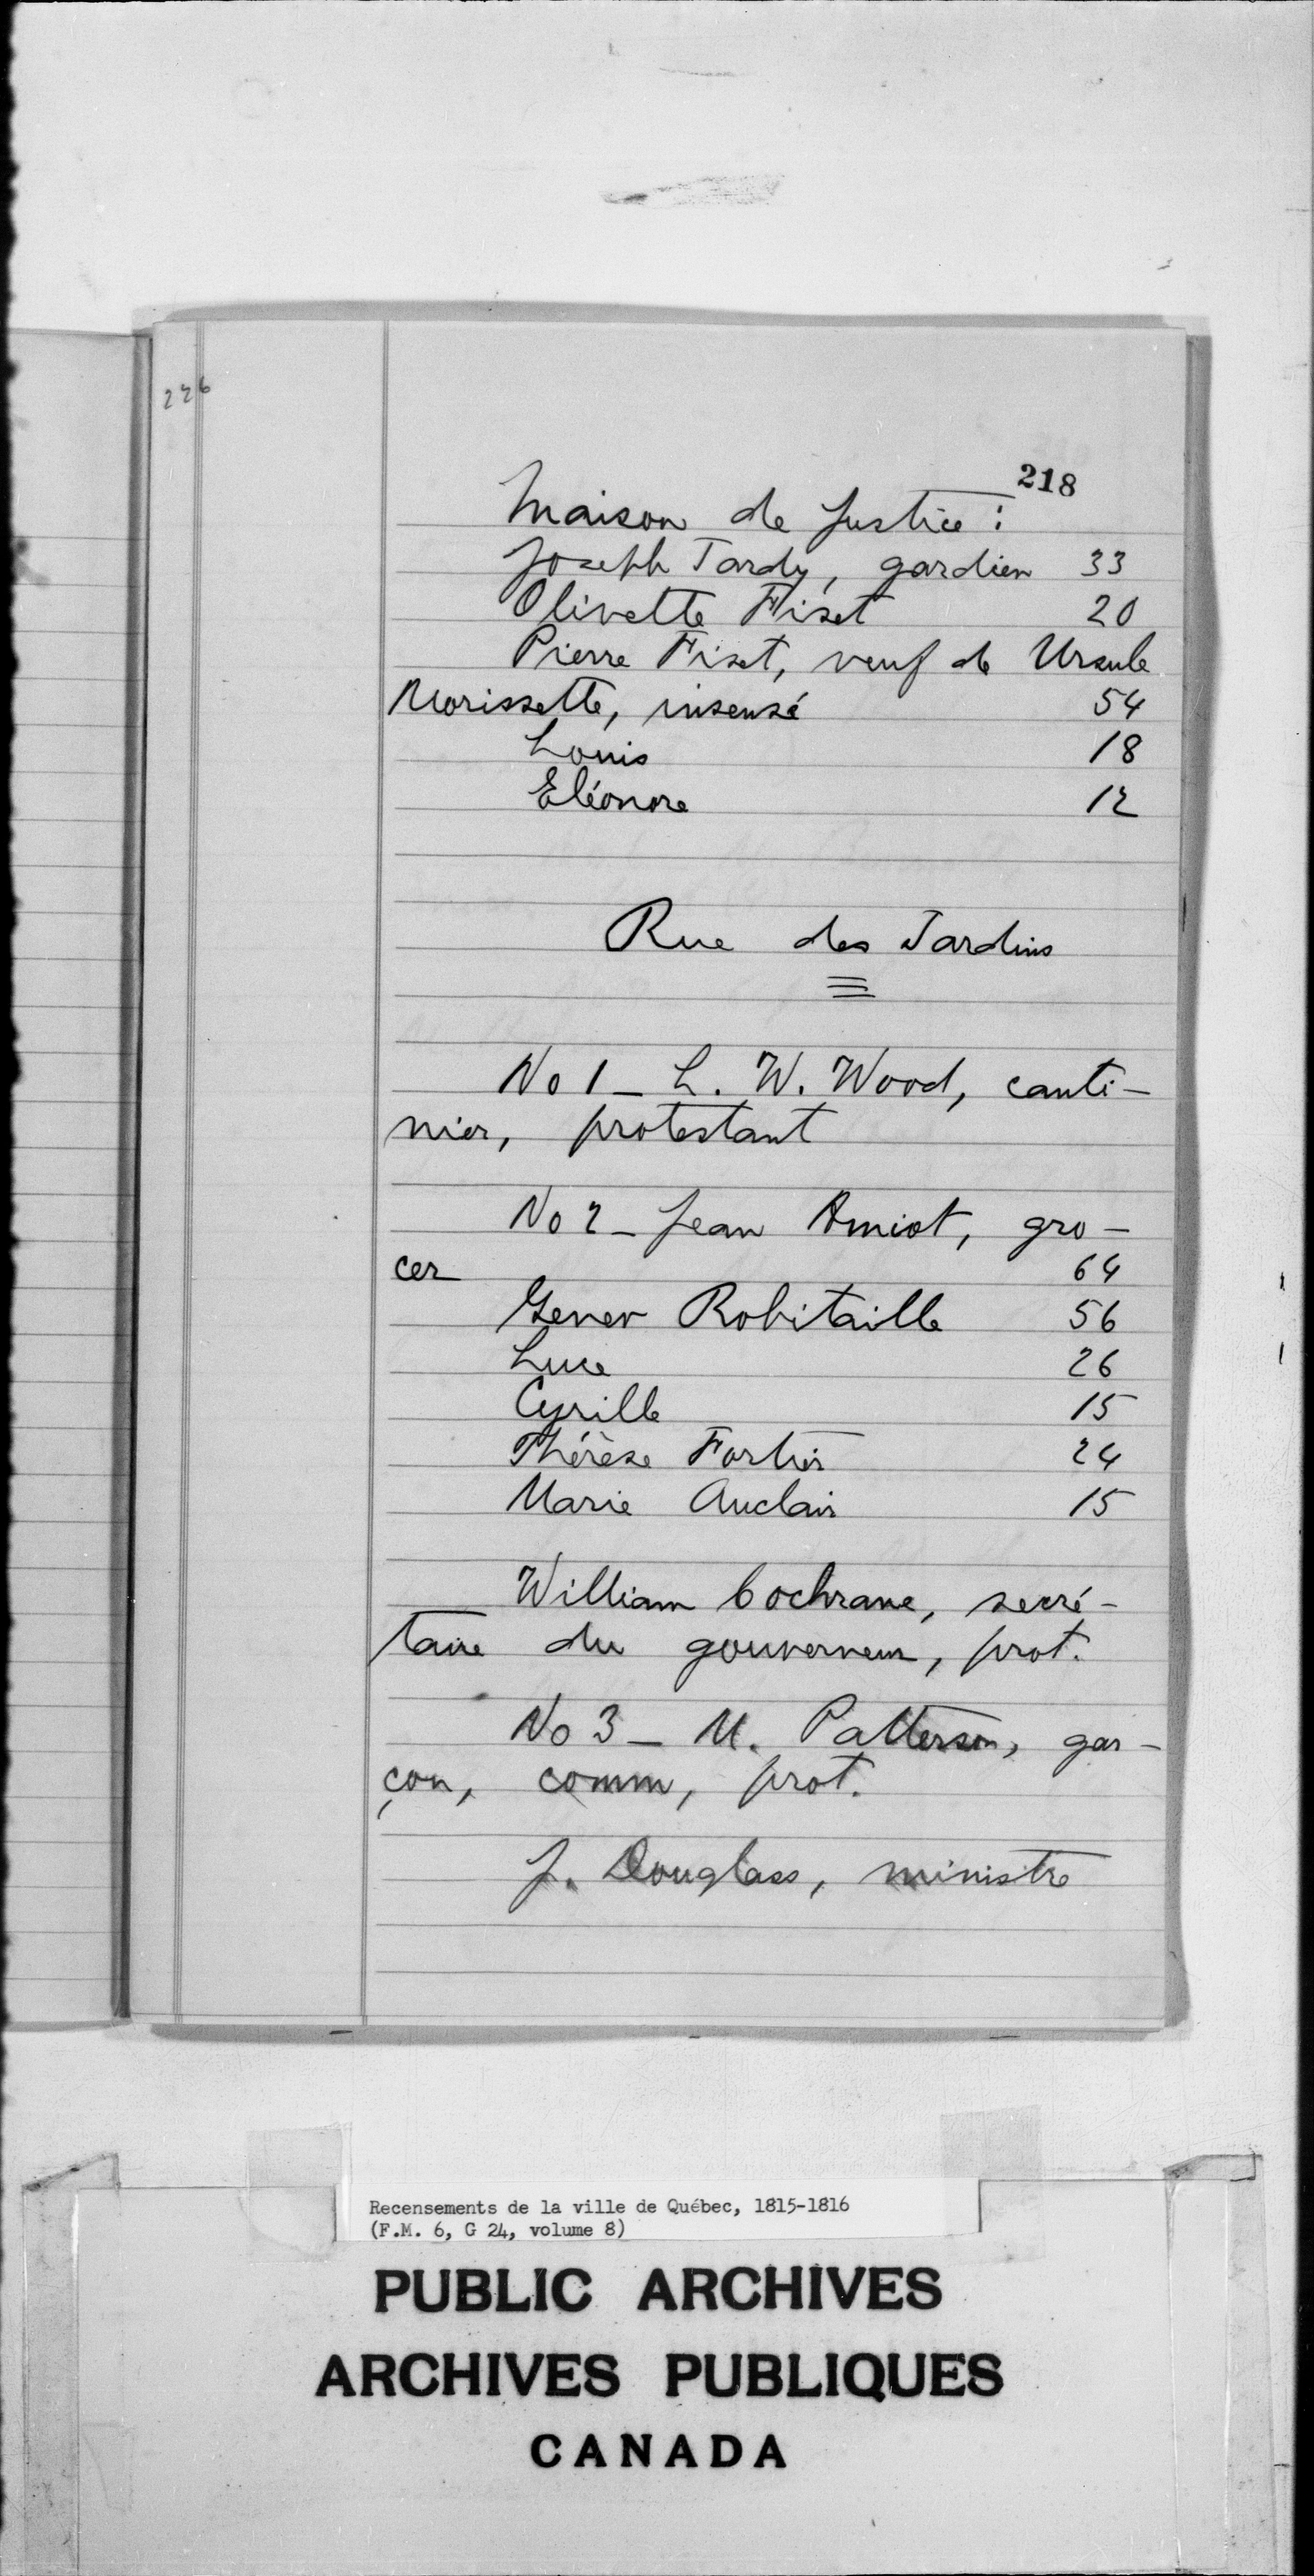 226
218
Maison de Justice :
Joseph Tardy, gardien 33
Olivette Fiset 20
Pierre Fiset, veuf de Ursule
Morissette, insensé 54
Louis 18
Eléonore 12
Rue des Jardins
No 1 - L. W. Wood, canti-
nier, protestant
No 2 - Jean Amiot, gro-
cer 64
Genev Robitaille 56
Luce 26
Cyrille 15
Thérèse Fortier 24
Marie Auclair 15
William Cochrane, secré-
taire du gouverneur, prot.
No 3 - M. Patterson, gar-
çon, comm, prot.
J. Douglass, ministre
Recensements de la ville de Québec, 1815-1816
(F.M. 6, G 24, volume 8)
PUBLIC ARCHIVES
ARCHIVES PUBLIQUES
CANADA